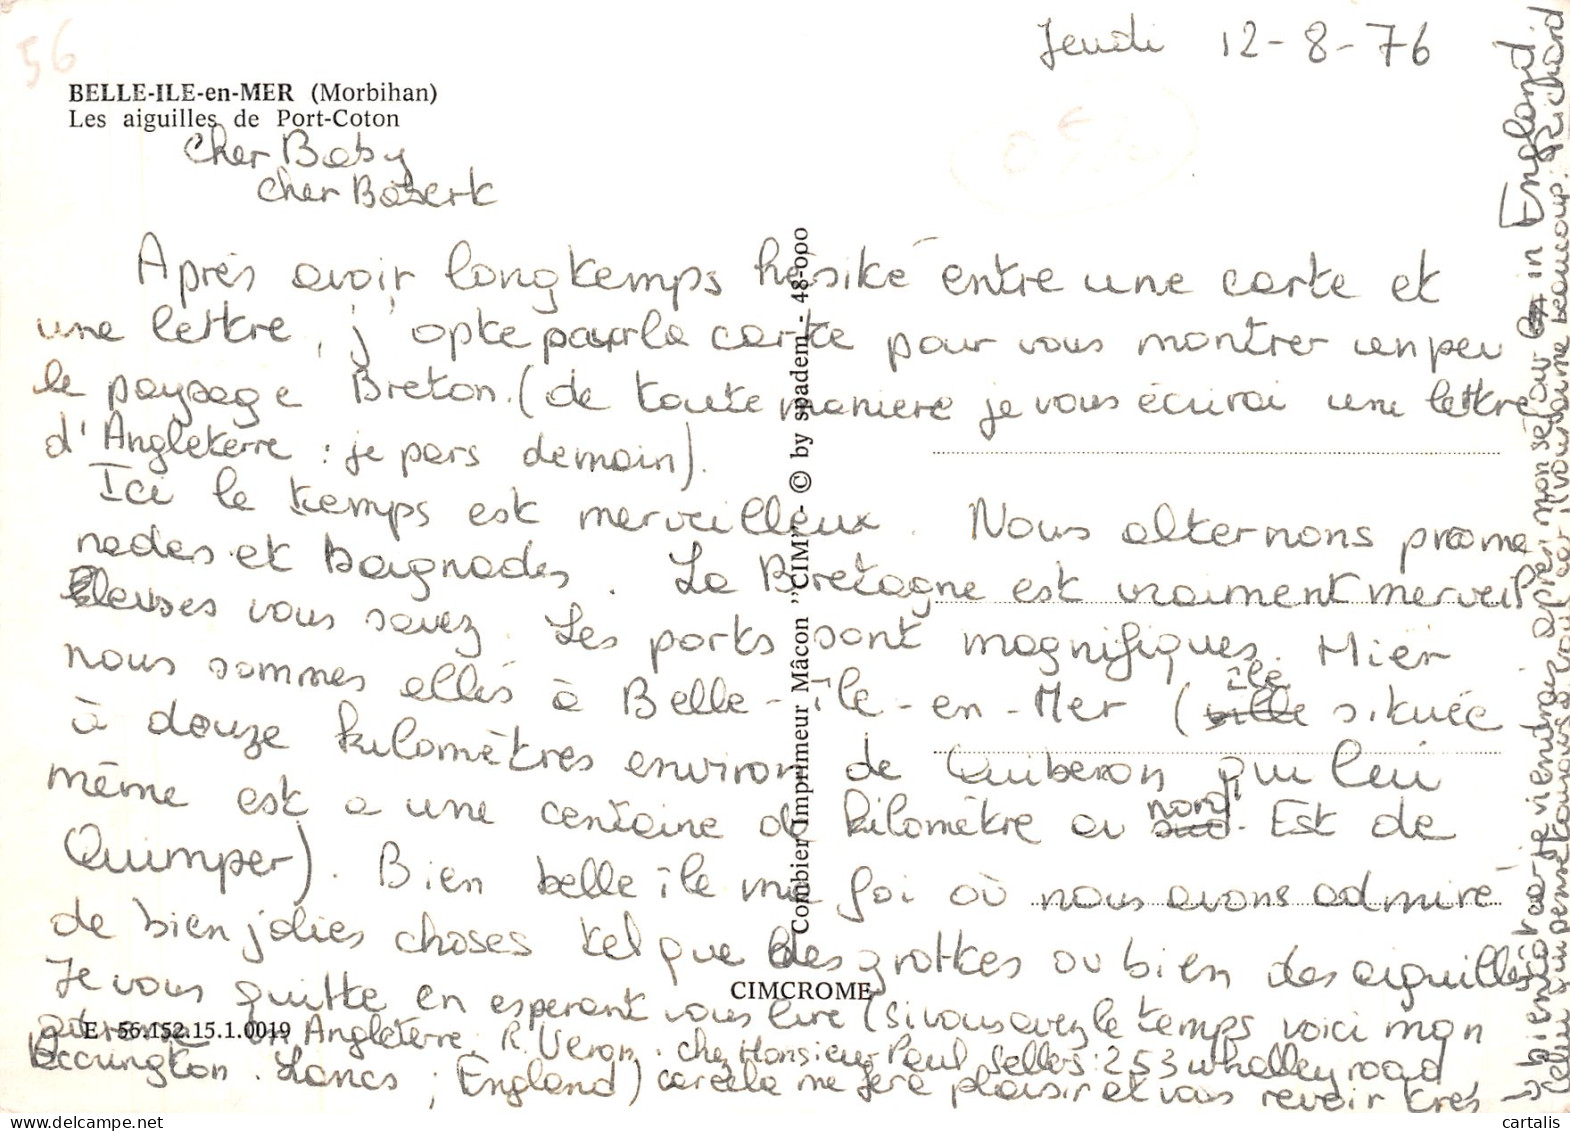 56
Jeudi 12-8-76
BELLE-ILE-en-MER (Morbihan)
Les aiguilles de Port-Coton
Cher Baby
Cher Bosert
Après avoir longtemps hésité entre une carte et
une lettre, j'opte pour la carte pour vous montrer un peu
le paysage Breton. (de toute maniere je vous écrirai une lettre
d'Angleterre : je pars demain).
Ici le temps est merveilleux. Nous alternons prome
nades et baignades. La Bretagne est vraiment merveil
leuses vous savez. Les ports sont magnifiques. Hier
nous sommes allés à Belle-île-en-Mer (île située
à douze kilomètres environ de Quiberon qui lui
même est a une centaine de kilomètre au nord-Est de
Quimper). Bien belle île ma foi où nous avons admiré
de bien jolies choses tel que des grottes ou bien des aiguilles
Je vous quitte en esperant vous lire (si vous avez le temps voici mon
en Angleterre. R. Veron. chez Monsieur Paul Sellers : 253 whalley road
Accrington. Lancs ; England) car cela me fera plaisir et vous revoir très →
→ bientôt car je viendrai après mon séjour in England
Celui qui pense toujours à vous et qui vous aime beaucoup. Richard
Combier Imprimeur Mâcon "CIM" - © by spadem - 48-000
CIMCROME
E - 56.152.15.1.0019
cartalis
www.delcampe.net